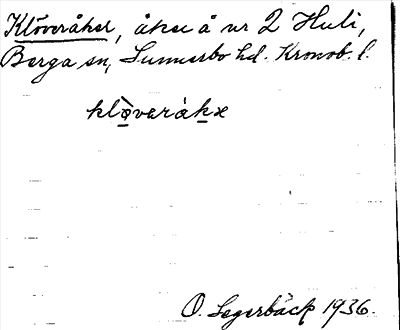 Klöveråker, åker å nr 2 Huli,
Berga sn, Sunnerbo hd. Kronob. l.
klò̱veråḵæ
O. Segerbäck 1936.